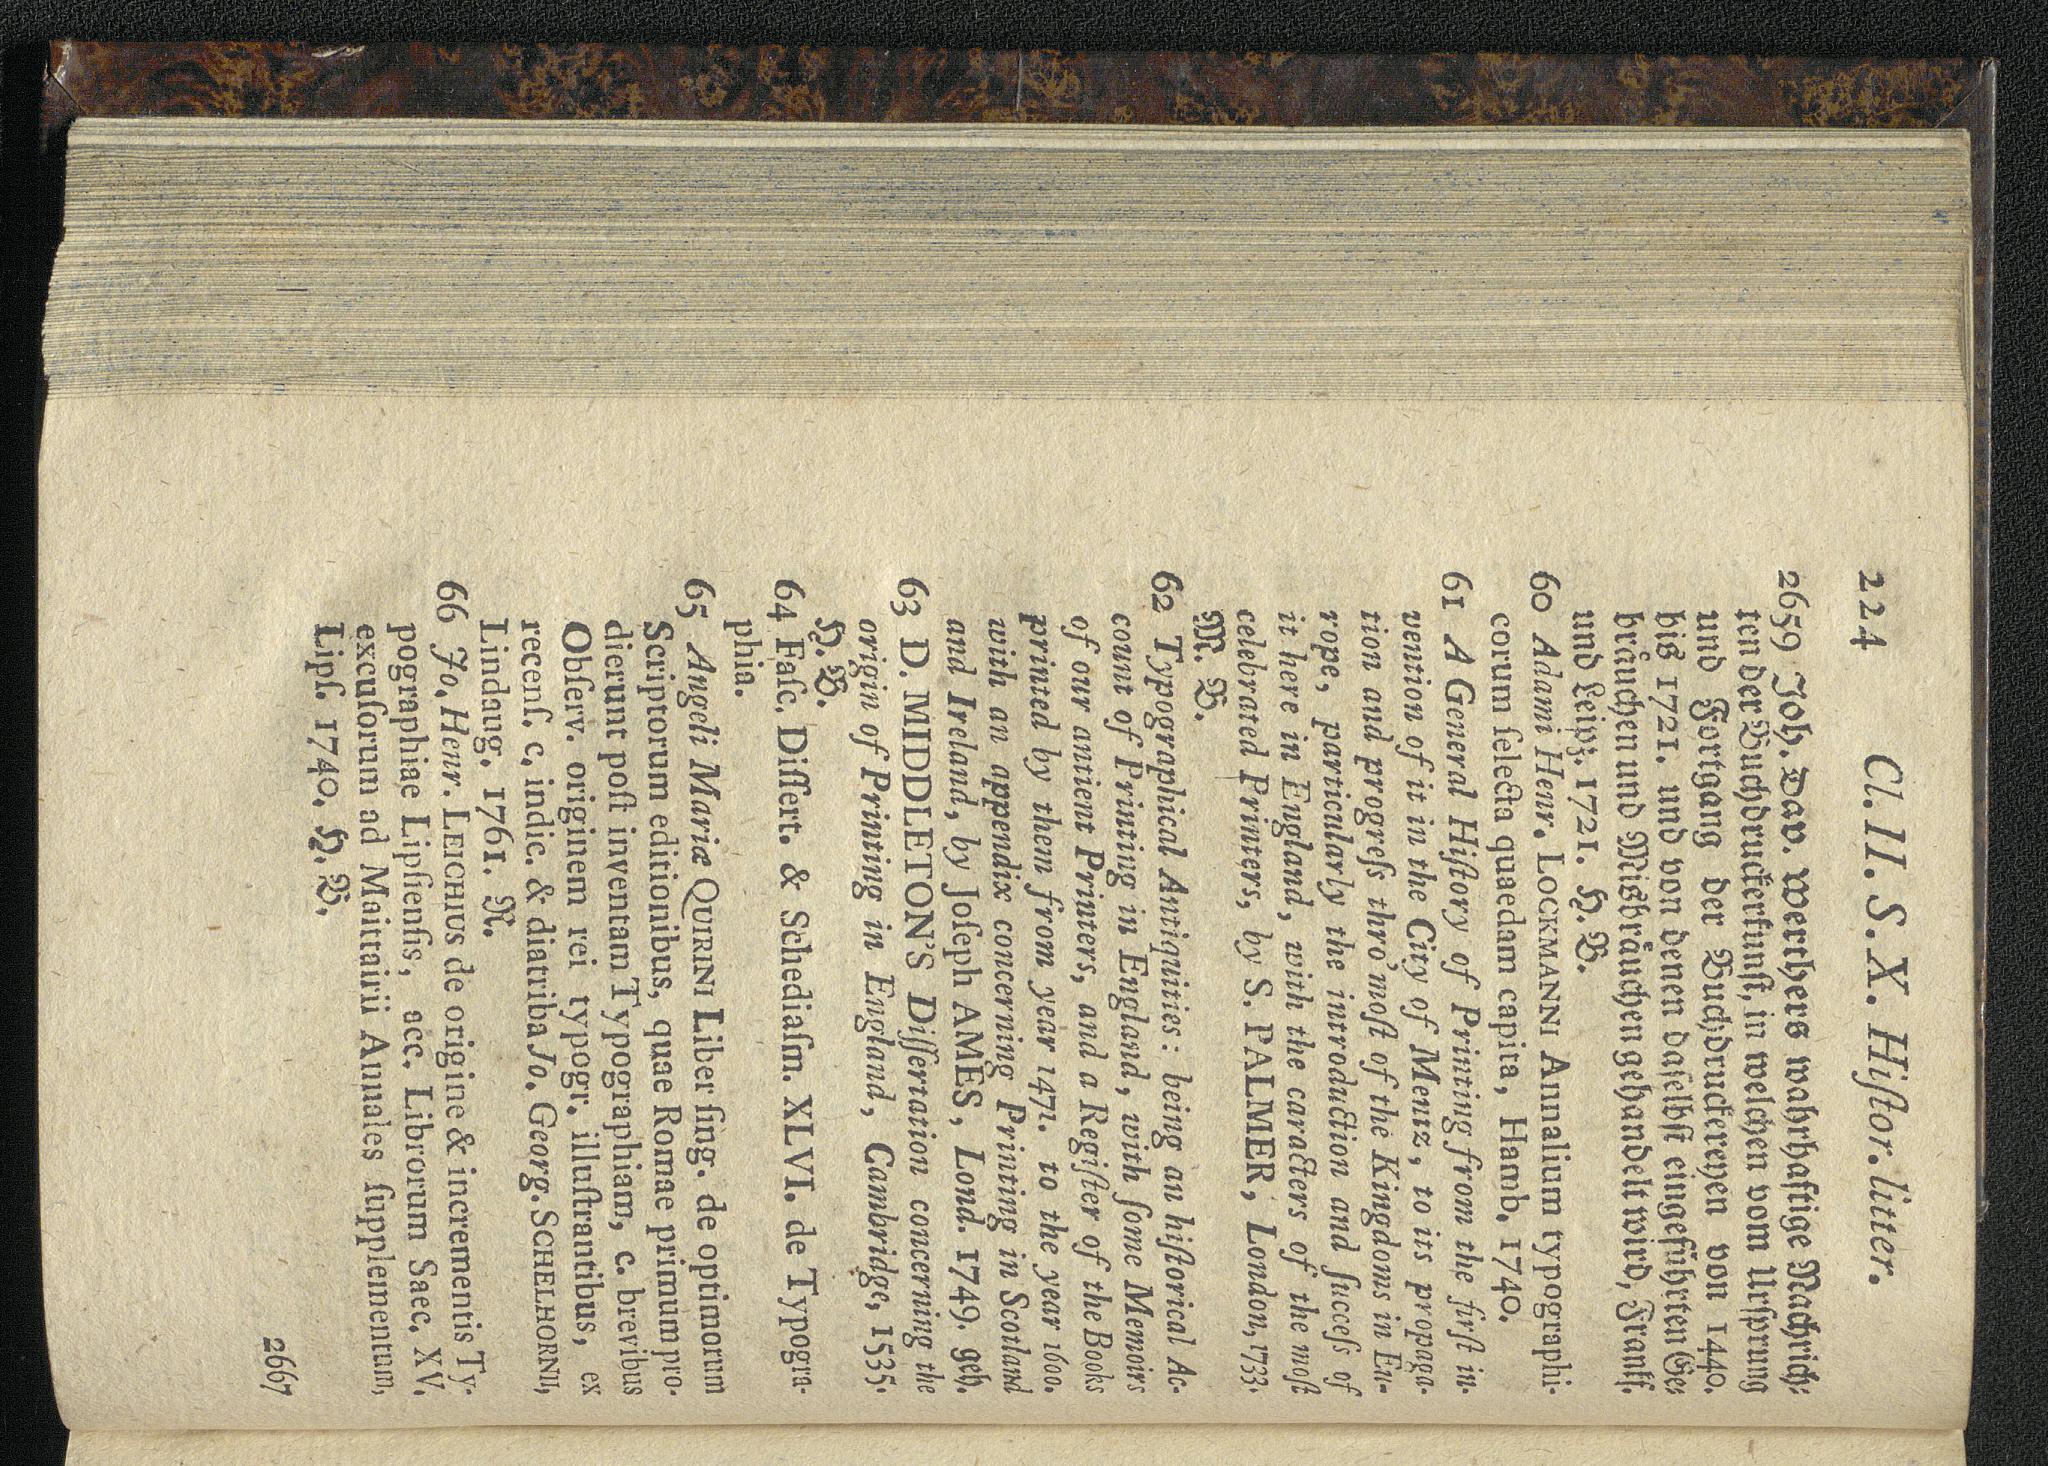 224 Cl. II. S. X. Hiſtor. litter.
2659 Joh. Dav. Werthers wahrhaftige Nachrich-
ten der Buchdruckerkunſt, in welchen vom Urſprung
und Fortgang der Buchdruckereyen von 1440.
biß 1721. und von denen daſelbſt eingeführten Ge-
bräuchen und Mißbräuchen gehandelt wird, Frankf.
und Leipz. 1721. H. B.
60 Adami Henr. LOCKMANNI Annalium typographi-
corum ſelecta quaedam capita, Hamb. 1740.
61 A General Hiſtory of Printing from the firſt in-
vention of it in the City of Mentz, to its propaga-
tion and progreſs thro' moſt of the Kingdoms in Eu-
rope, particularly the introduction and ſucceſs of
it here in England, with the caracters of the moſt
celebrated Printers, by S. PALMER, London, 1733.
M. B.
62 Typographical Antiquities: being an hiſtorical Ac-
count of Printing in England, with ſome Memoirs
of our antient Printers, and a Regiſter of the Books
printed by them from year 1471. to the year 1600.
with an appendix concerning Printing in Scotland
and Ireland, by Joſeph AMES, Lond. 1749. geh.
63 D. MIDDLETON'S Diſſertation concerning the
origin of Printing in England, Cambridge, 1535.
H. B.
64 Faſc. Diſſert. & Schediaſm. XLVI. de Typogra-
phia.
65 Angeli Mariæ QUIRINI Liber ſing. de optimorum
Scriptorum editionibus, quae Romae primum pro-
dierunt poſt inventam Typographiam, c. brevibus
Obſerv. originem rei typogr. illuſtrantibus, ex
recenſ. c. indic. & diatriba Jo. Georg. SCHELHORNII,
Lindaug. 1761. R.
66 Jo. Henr. LEICHIUS de origine & incrementis Ty-
pographiae Lipſienſis, acc. Librorum Saec. XV.
excuſorum ad Maittairii Annales ſupplementum,
Lipſ. 1740. H. B.
2667